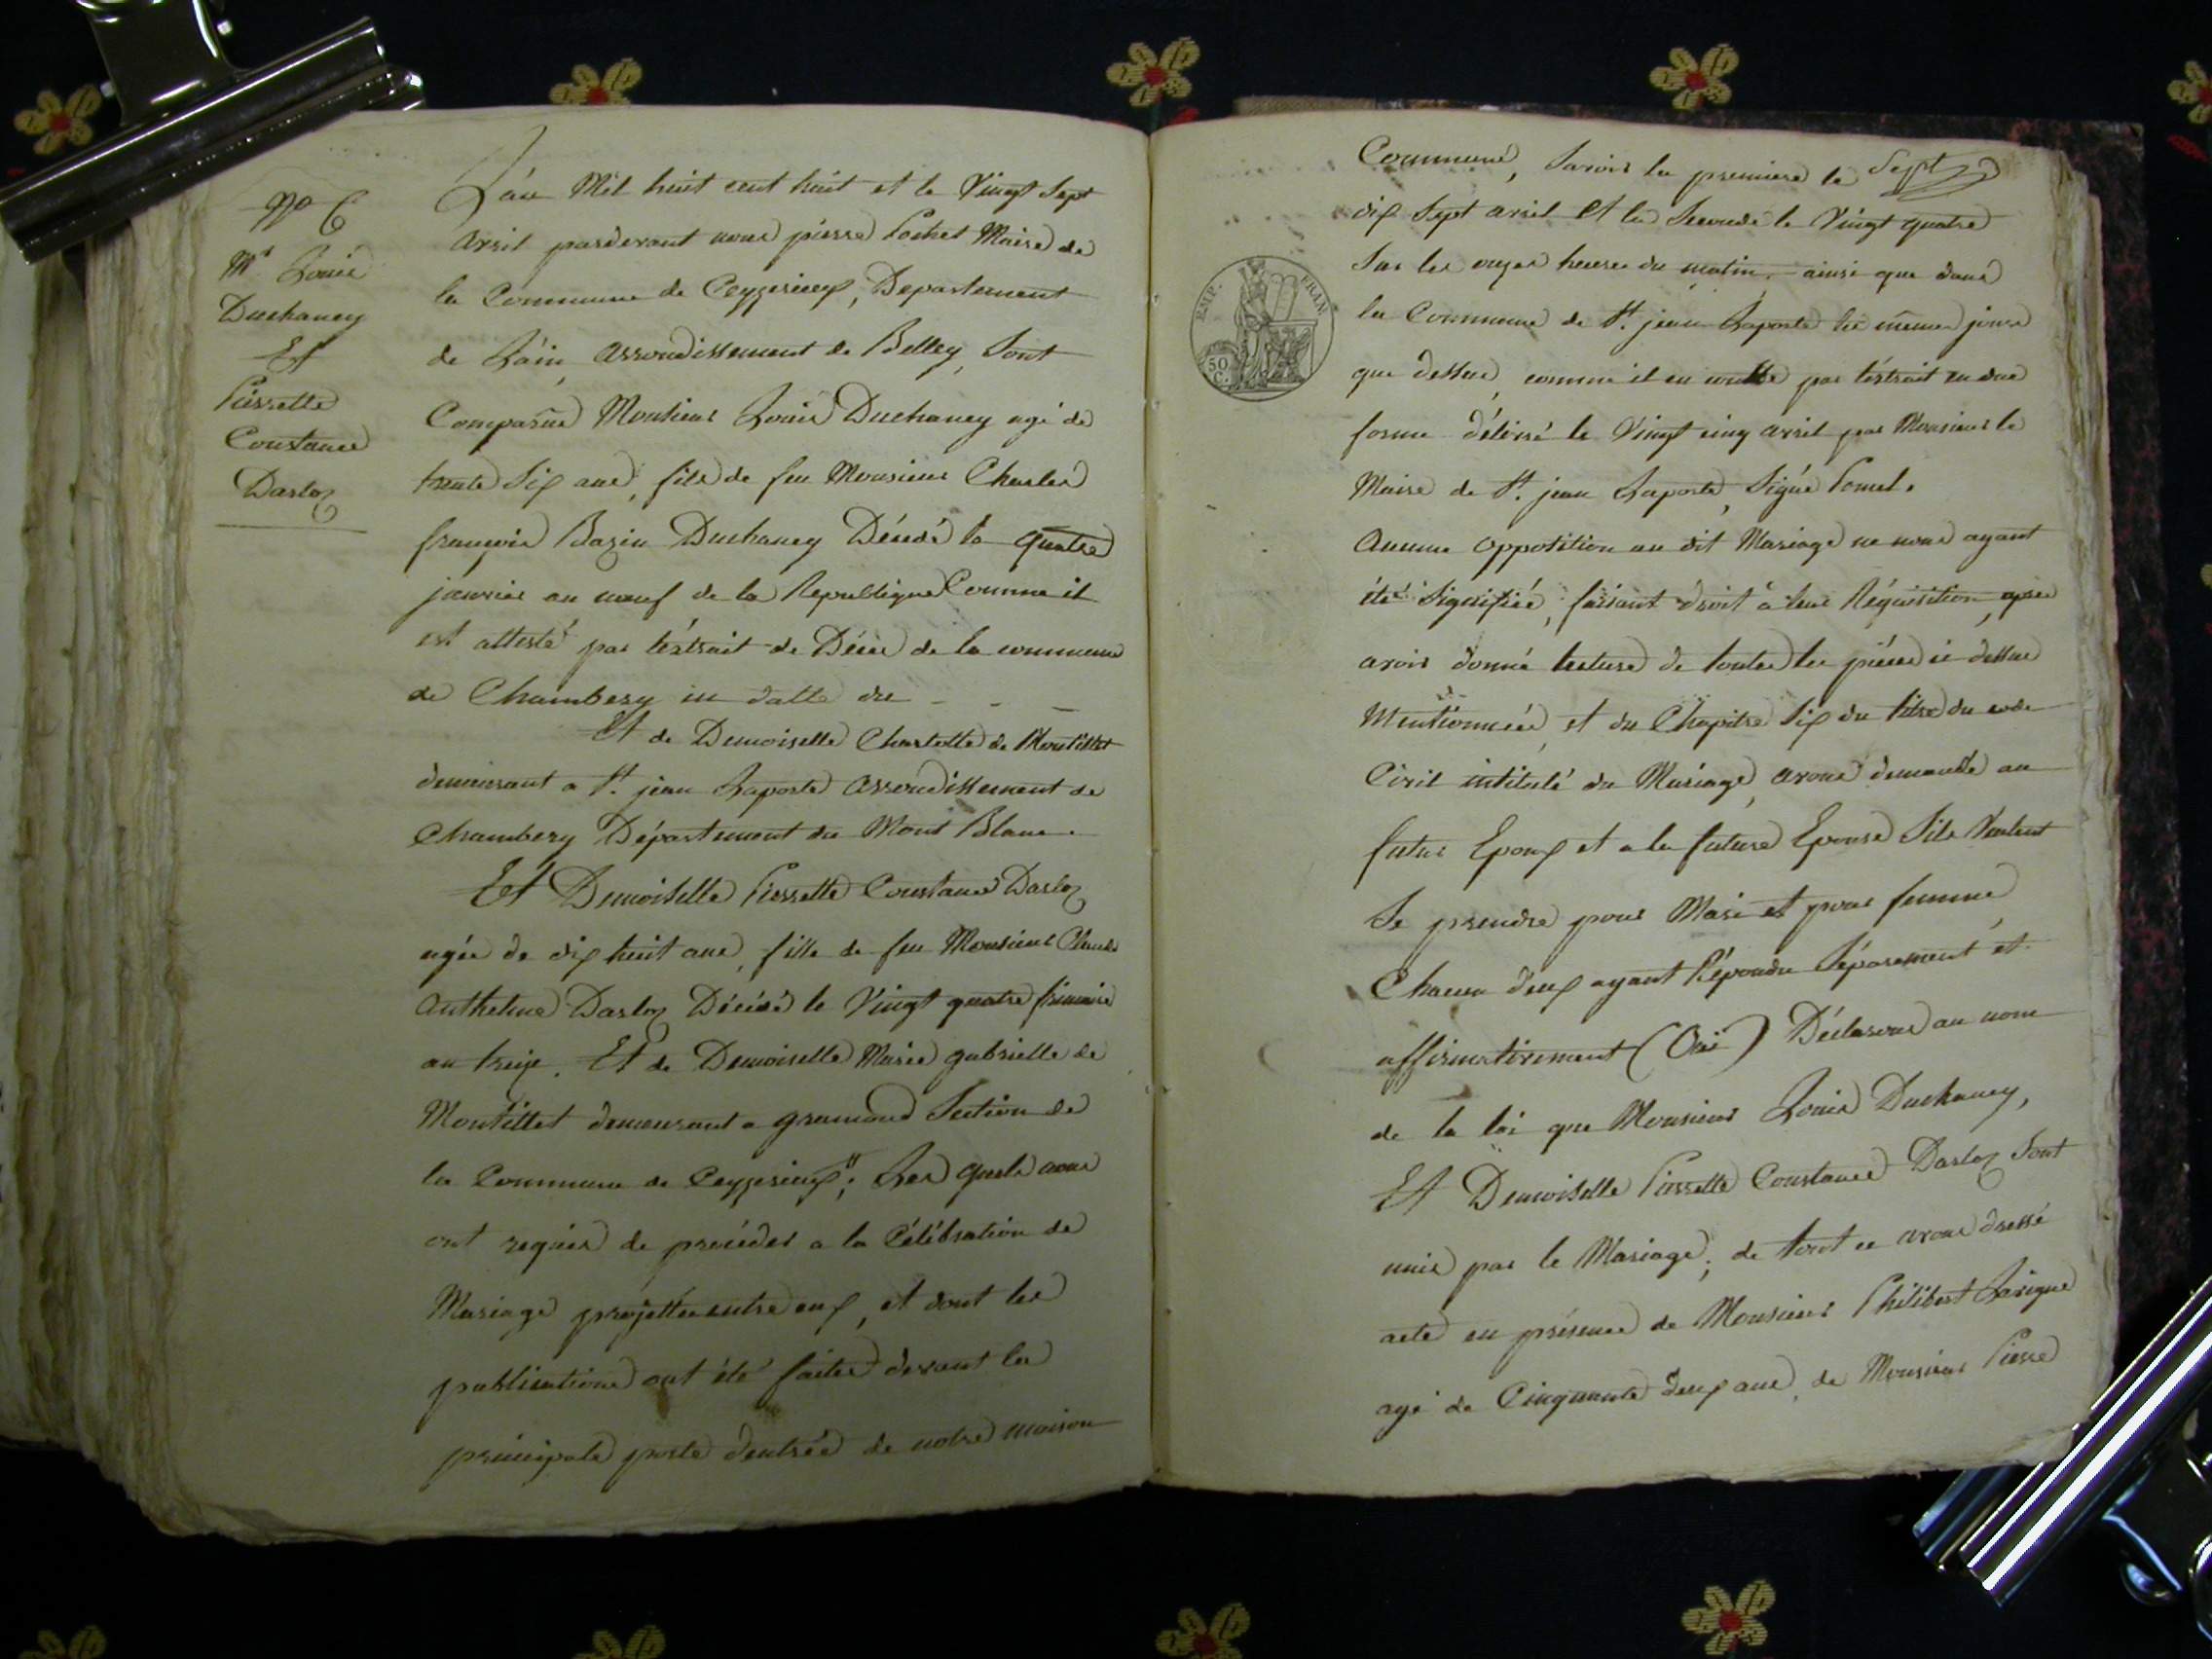 No 6
Mr Louis
Duchaney
Et
Pierrette
Constance
Darloz
L'an Mil huit cent huit et le Vingt Sept
avril pardevant nous pierre Pochet Maire de
la Commune de Ceyzerieux, Departement
de L'ain, arrondissement de Belley, Sont
Comparus Monsieur Louis Duchaney agé de
trente Six ans, fils de feu Monsieur Charles
françois Bazin Duchaney Décédé le quatre
janvier an neuf de la Republique Comme il
est attesté par l'extrait de Décès de la commune
de Chambery en datte du - - -
Et de Demoiselle Charlotte de Montillet
demeurant a St. jean Laporte arrondissement de
Chambery Département du Mont Blanc.
Et Demoiselle Pierrette Constance Darloz
agée de dix huit ans, fille de feu Monsieur Claude
Anthelme Darloz Décédé le Vingt quatre frimaire
an treize. Et de Demoiselle Marie gabrielle de
Montillet demeurant a gramond Section de
la Commune de Ceyzerieux; Les quels nous
ont requis de procéder a la Célébration de
Mariage projetté entre eux, et dont les
publications ont été faites devant la
principale porte d'entrée de notre maison
Commune, Savoir la premiere le Sept
dix Sept avril et la Seconde le Vingt quatre
Sur les onze heures du matin. ainsi que dans
la Commune de St. jean Laporte les mêmes jours
que dessus, comme il en par l'extrait en due
forme délivré le Vingt cinq avril par Monsieur le
Maire de St. jean Laporte, Signé Pomel.
Aucune opposition au dit Mariage ne nous ayant
été Signifiée, faisant droit à leur Réquisition, après
avoir donné lecture de toutes les pièces ci dessus
Mentionnées, et du Chapitre Six du titre du code
Civil intitulé du Mariage, avons demandé au
futur Epoux et a la future Epouse S'ils Veulent
Se prendre pour Mari et pour femme,
Chacun d'eux ayant Répondu Séparement et
affirmativement (Oui) Déclarons au nom
de la loi que Monsieur Louis Duchaney,
Et Demoiselle Pierrette Constance Darloz Sont
unis par le Mariage; de tout ce avons dressé
acte en présence de Monsieur Philibert Lavigne
agé de Cinquante deux ans, de Monsieur Pierre
EMP. FRAN.
50
C.